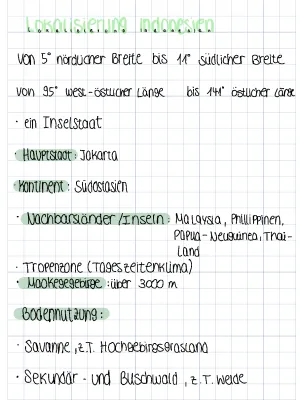 Lokalisierung Indonesien
Von 5° nördlicher Breite bis 11° südlicher Breite
von 95° west-östlicher Länge bis 141° östlicher Länge
· ein Inselstaat
· Hauptstadt: Jakarta
Kontinent: Südostasien
· Nachbarsländer/Inseln: Malaysia, Phillipinen,
Papua-Neuguinea, Thai-
land
· Tropenzone (Tageszeitenklima)
· Maokegebirge: über 3000 m
Bodennutzung:
· Savanne, z.T. Hochgebirgsgrasland
· Sekundär- und Buschwald, z.T. weide